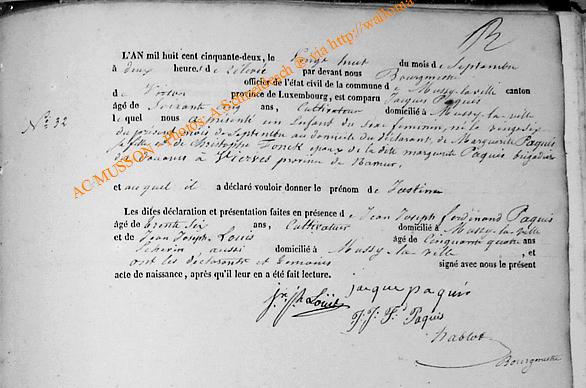 R
L'AN mil huit cent cinquante-deux, le vingt huit du mois de Septembre
à deux heures de relevée par devant nous Bourgmestre
officier de l'état civil de la commune de Mussy-la-ville canton
de Virton province de Luxembourg, est comparu Jacques Paquis
âgé de soixante cinq ans, Cultivateur domicilié à Mussy-la-ville
lequel nous a présenté un Enfant du sexe féminin, né le vingt six
du présent mois de Septembre au domicile du déclarant, de Marguerite Paquis
sa fille et de Christophe Fonck époux de la dite marguerite Paquis brigadier
de douanes à Vierves province de Namur,
et auquel il a déclaré vouloir donner le prénom de Justine
Les dites déclaration et présentation faites en présence de Jean Joseph ferdinand Paquis
âgé de trente six ans, Cultivateur domicilié à Mussy-la-ville
et de Jean Joseph Louis âgé de Cinquante quatre ans
aussi domicilié à Mussy-la-ville, et
ont les déclarants et témoins signé avec nous le présent
acte de naissance, après qu'il leur en a été fait lecture.
N° 32
Louis jacque paquis
J. J. F. Paquis
Bourgmestre
AC MUSSON - Photos: A.S. @ via http://